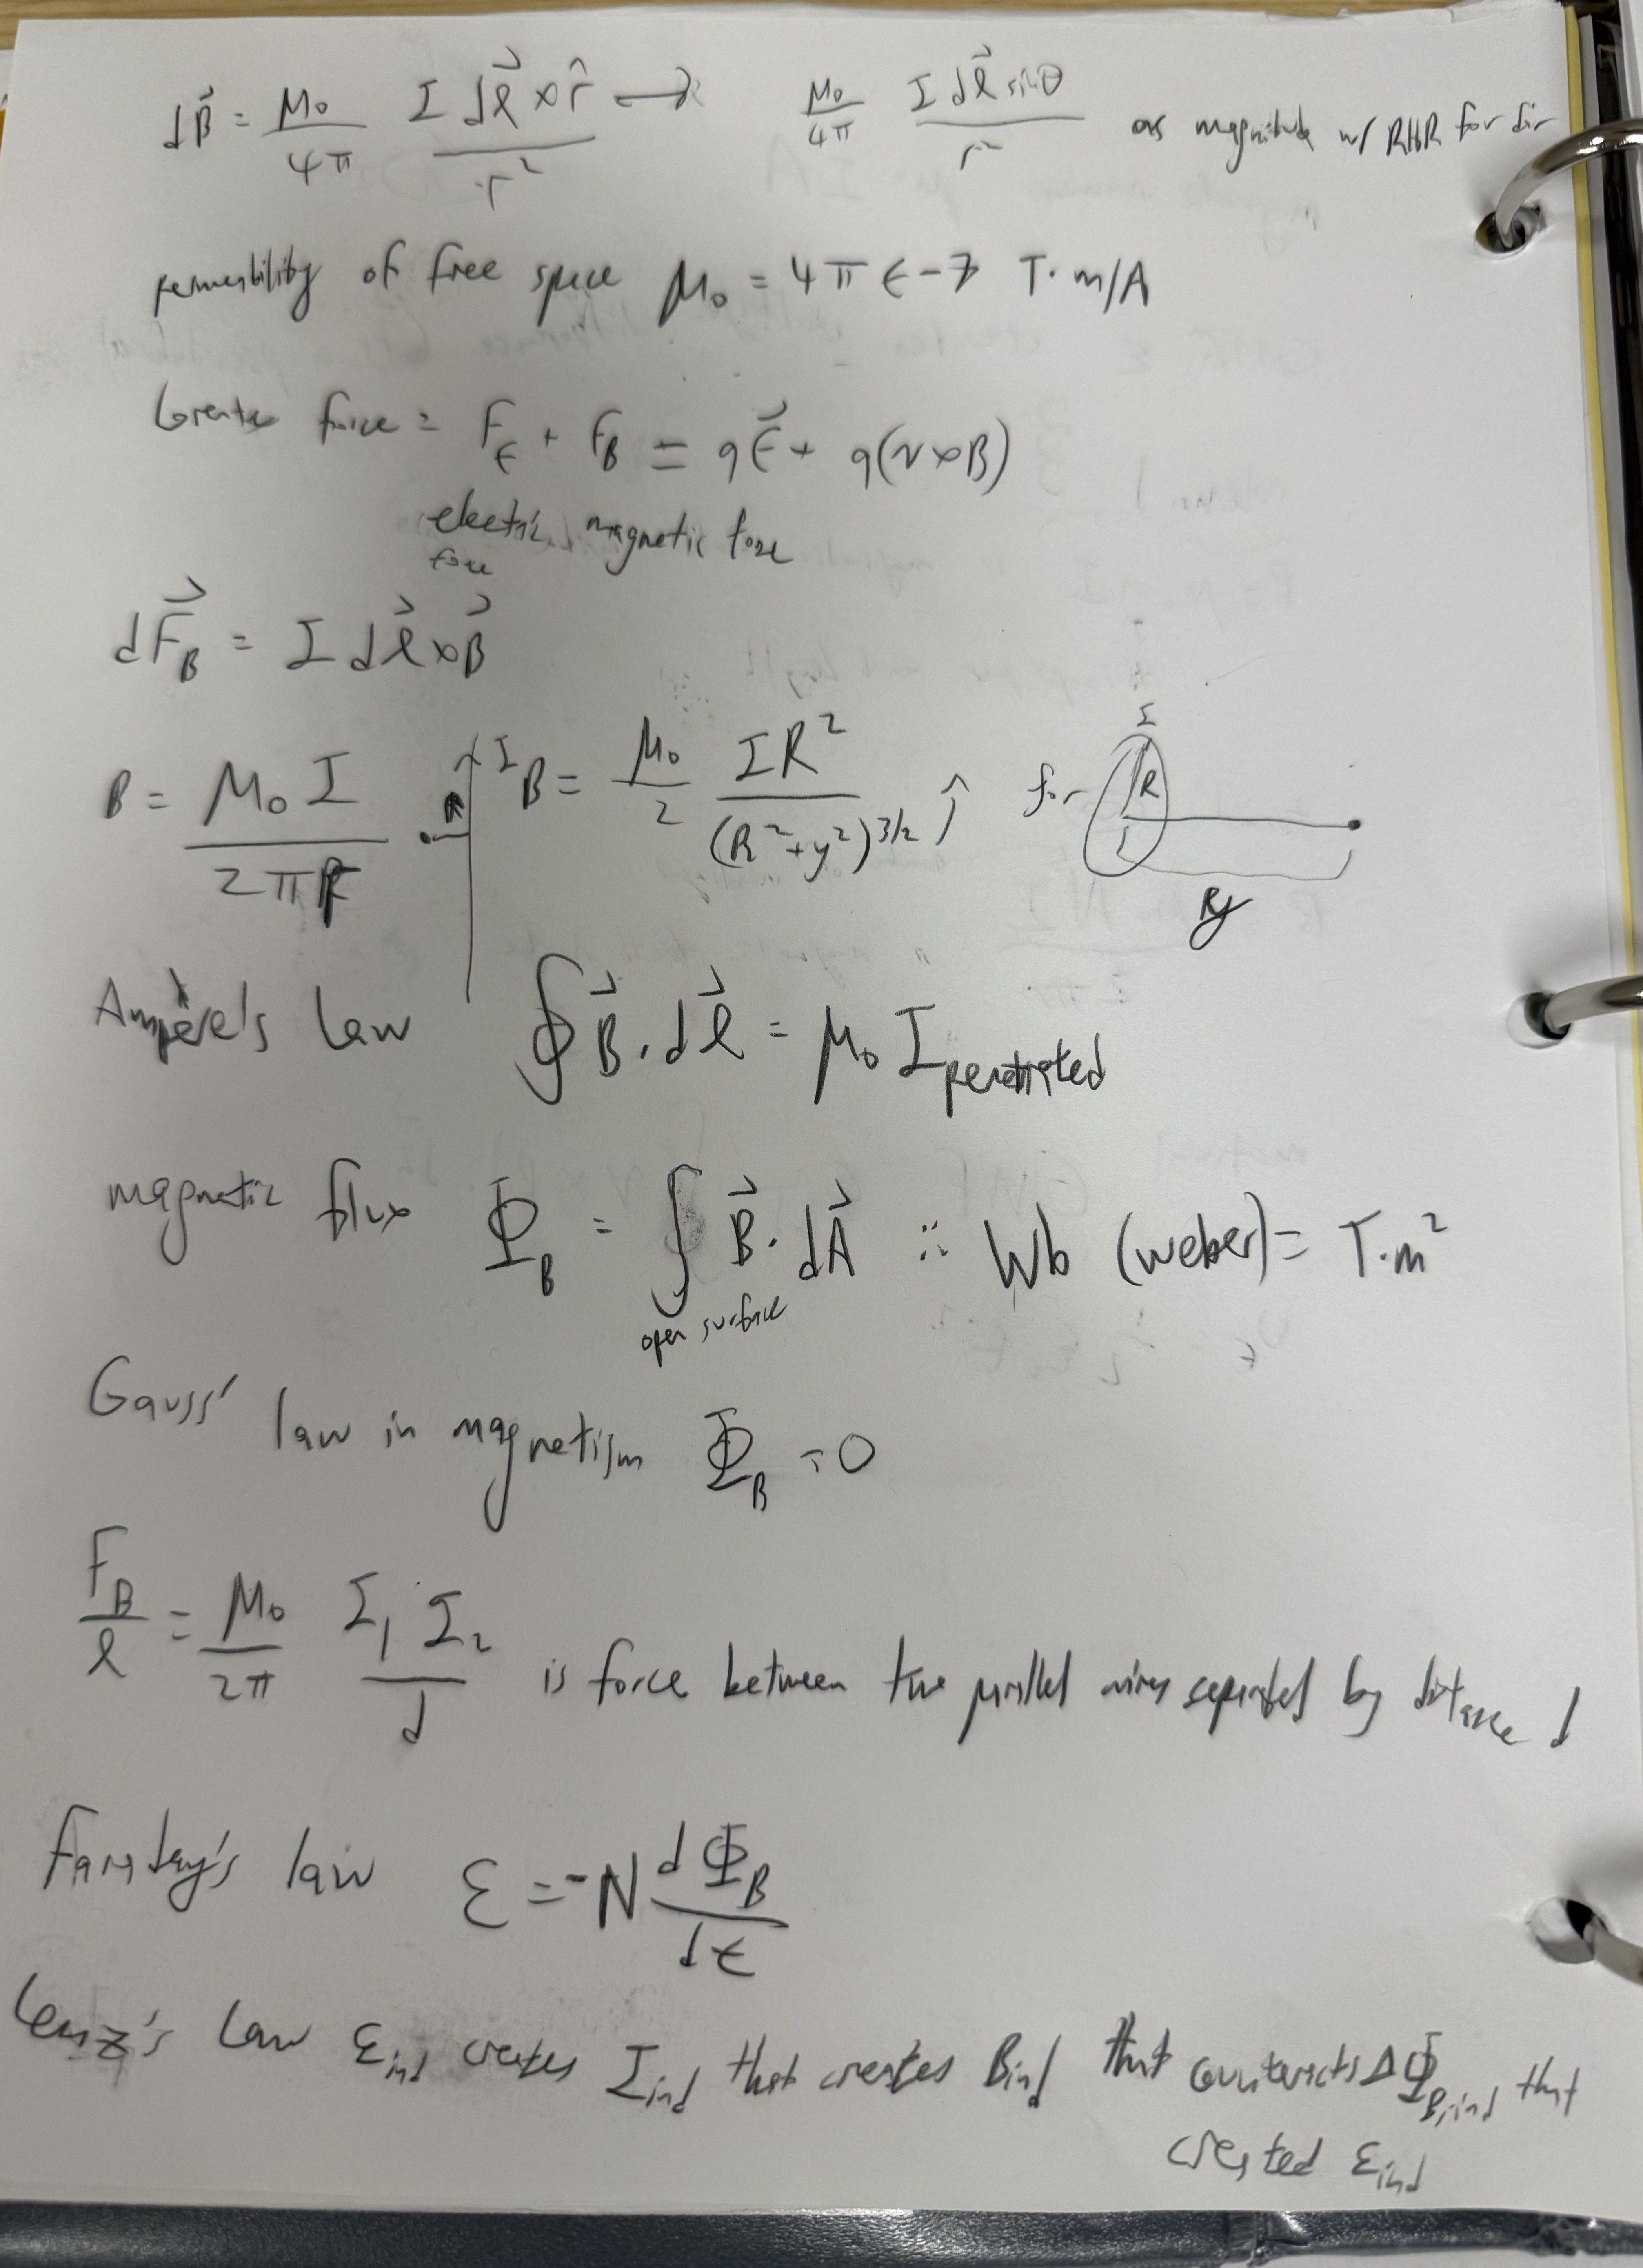 dB⃗ = μ₀/4π I dℓ⃗ × r̂ / r² → μ₀/4π I dℓ⃗ sinθ / r² as magnitude w/ RHR for dir
permeability of free space μ₀ = 4π E-7 T·m/A
force = F_E + F_B = qE⃗ + q(v×B)
electric force magnetic force
dF⃗_B = I dℓ⃗ × B⃗
B = μ₀ I / 2πR R I B = μ₀/2 IR² / (R² + y²)^3/2 ĵ for I R y
Ampère's Law ∮ B⃗ · dℓ⃗ = μ₀ I penetrated
magnetic flux Φ_B = ∫ open surface B⃗ · dA⃗ :: Wb (weber) = T·m²
Gauss' law in magnetism Φ_B = 0
F_B/ℓ = μ₀/2π I₁ I₂ / d is force between two parallel wires separated by distance d
Faraday's law ℰ = -N dΦ_B/dt
Lenz's Law ℰind creates Iind that creates Bind that counteracts ΔΦ_B,ind that
created ℰind